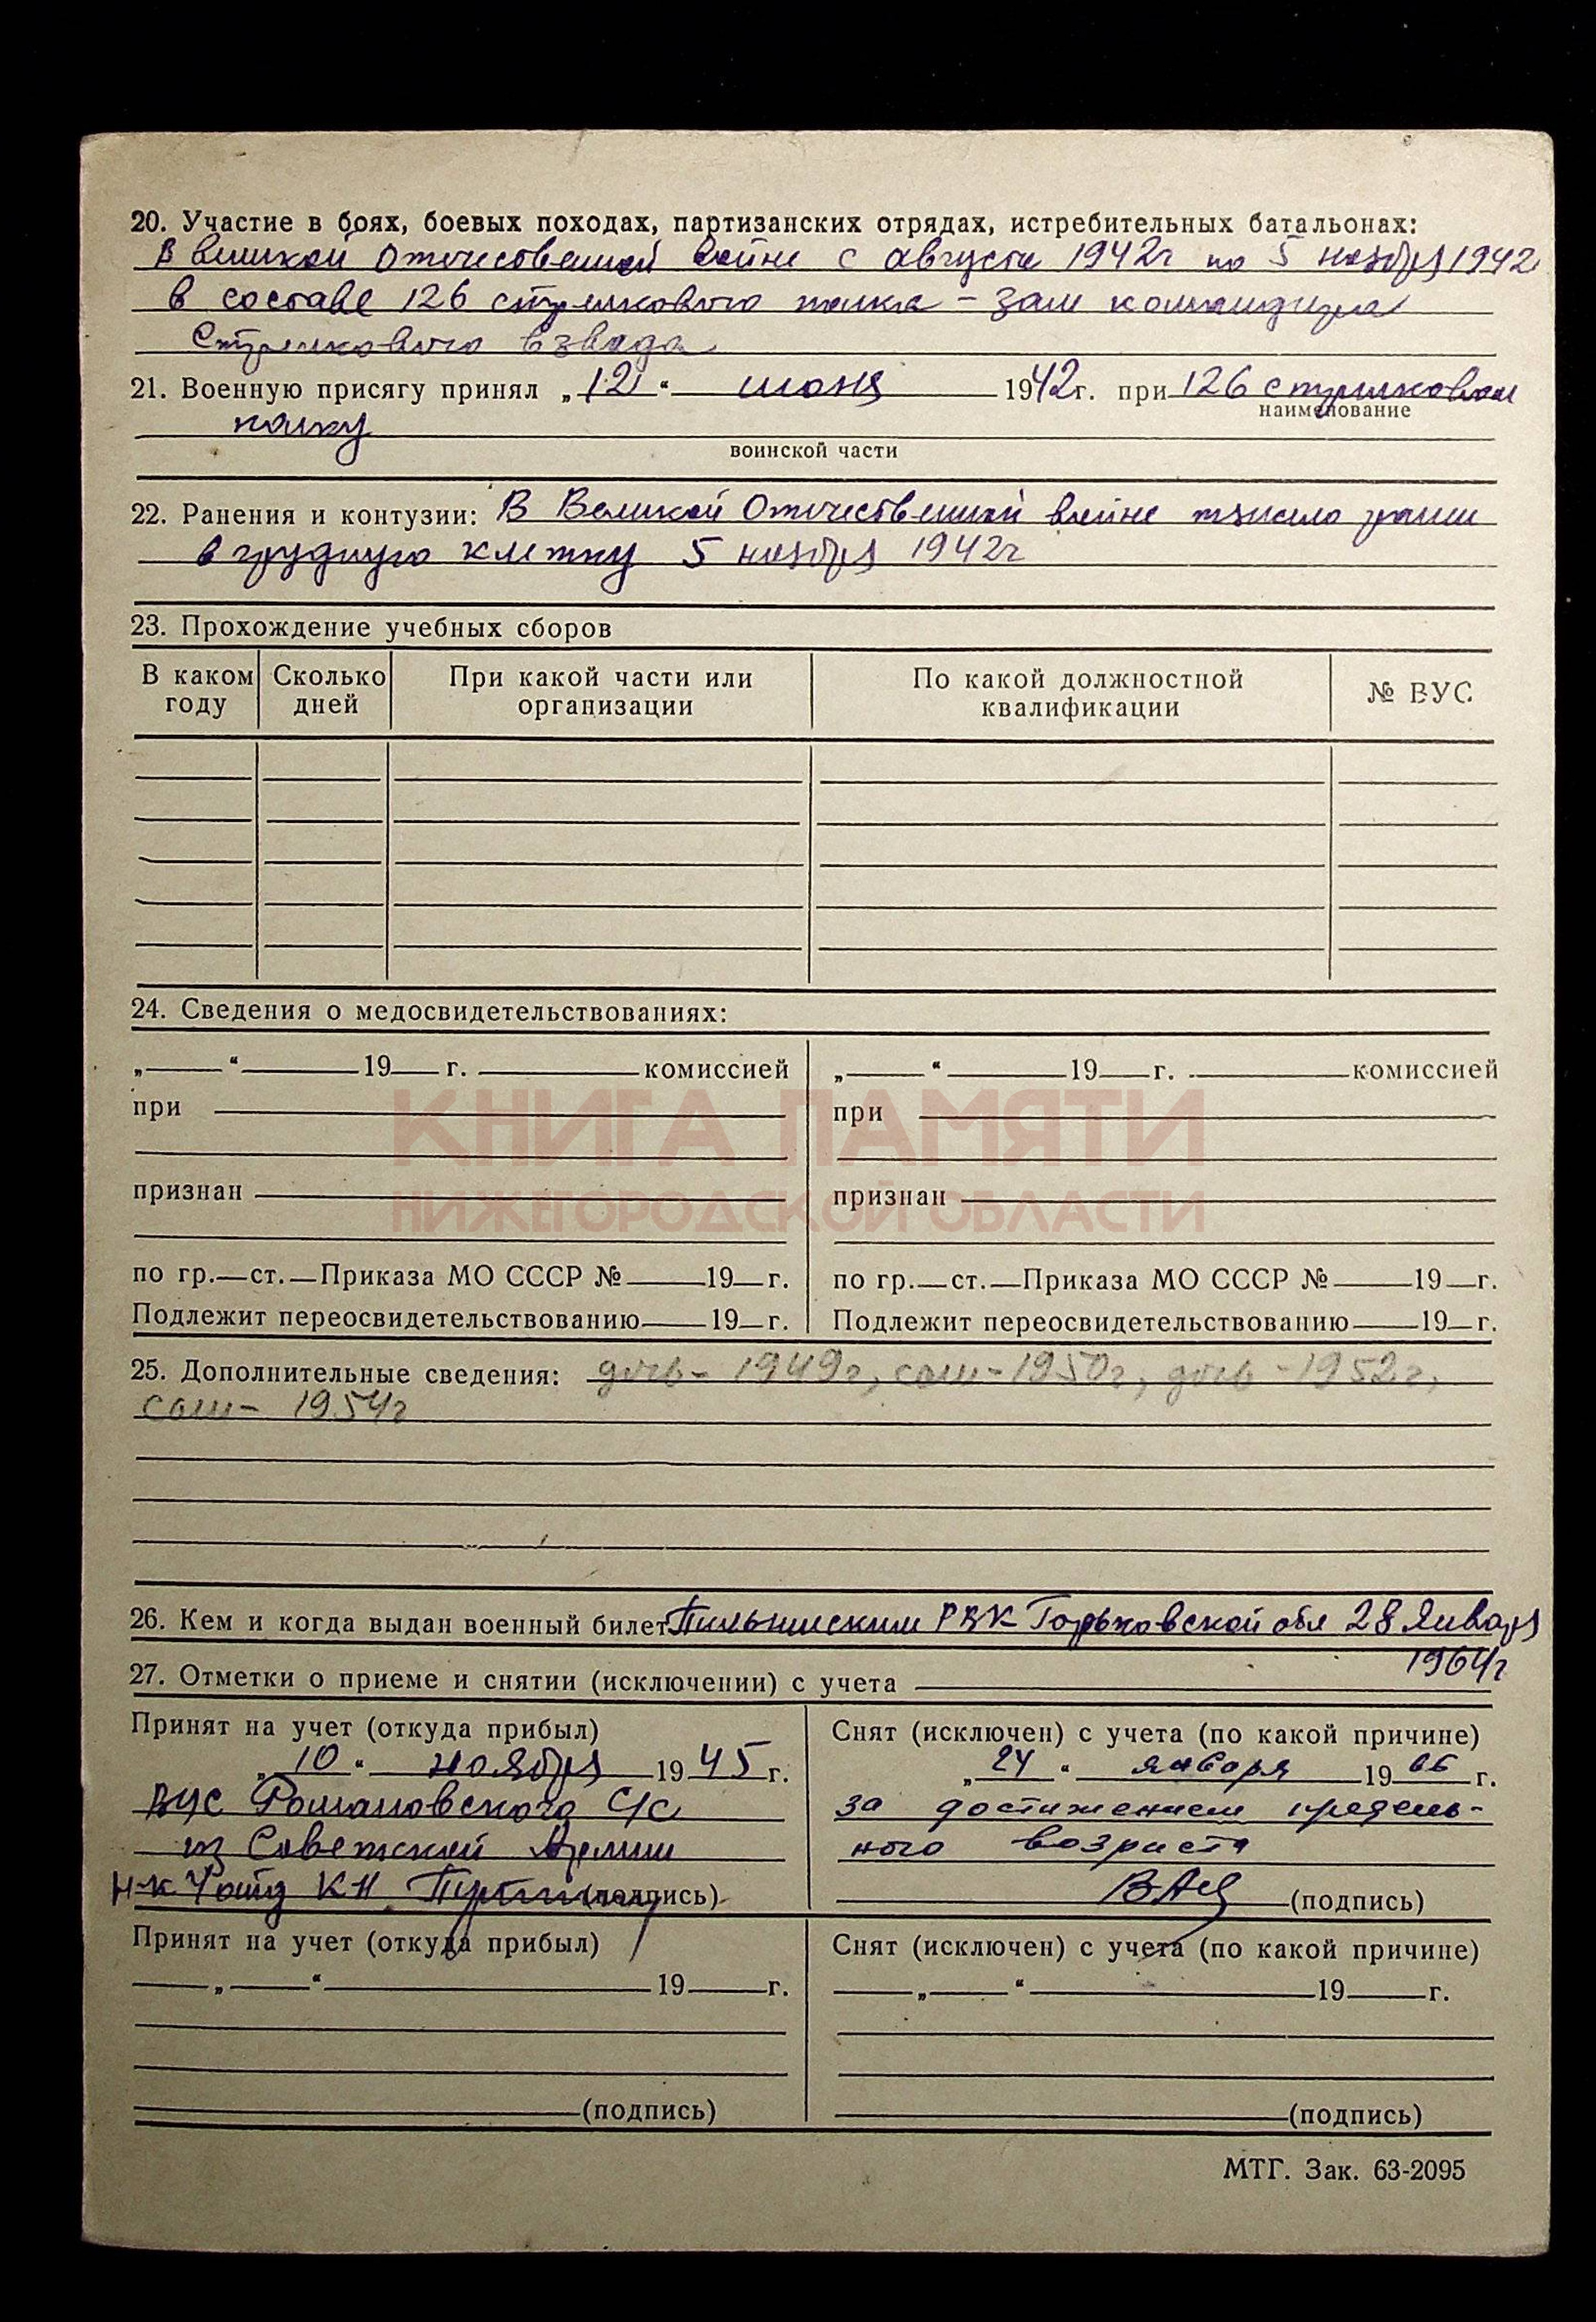 20. Участие в боях, боевых походах, партизанских отрядах, истребительных батальонах:
В Великой Отечественной войне с августа 1942г по 5 ноября 1942
в составе 126 стрелкового полка – зам командира
стрелкового взвода
21. Военную присягу принял „12“ июня 1942г. при 126 стрелковом
наименование
полку
воинской части
22. Ранения и контузии: В Великой Отечественной войне тяжело ранен
в грудную клетку 5 ноября 1942г
23. Прохождение учебных сборов
В каком году Сколько дней При какой части или организации По какой должностной квалификации № ВУС
24. Сведения о медосвидетельствованиях:
„ “ 19 г. комиссией „ “ 19 г. комиссией
при при
КНИГА ПАМЯТИ
признан признан
НИЖЕГОРОДСКОЙ ОБЛАСТИ
по гр. ст. Приказа МО СССР № 19 г. по гр. ст. Приказа МО СССР № 19 г.
Подлежит переосвидетельствованию 19 г. Подлежит переосвидетельствованию 19 г.
25. Дополнительные сведения: дочь – 1949г, сын – 1950г, дочь – 1952г,
сын – 1954г
26. Кем и когда выдан военный билет Пильнинским РВК Горьковской обл 28 Января
1964г
27. Отметки о приеме и снятии (исключении) с учета
Принят на учет (откуда прибыл)
„10“ ноября 1945г.
ВУС Романовского С/С
из Советской Армии
(подпись)
Снят (исключен) с учета (по какой причине)
„24“ января 1966 г.
за достижением предель-
ного возраста
(подпись)
Принят на учет (откуда прибыл)
„ “ 19 г.
(подпись)
Снят (исключен) с учета (по какой причине)
„ “ 19 г.
(подпись)
МТГ. Зак. 63-2095